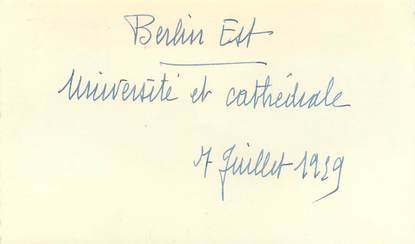 Berlin Est
Université et cathédrale
7 Juillet 1959